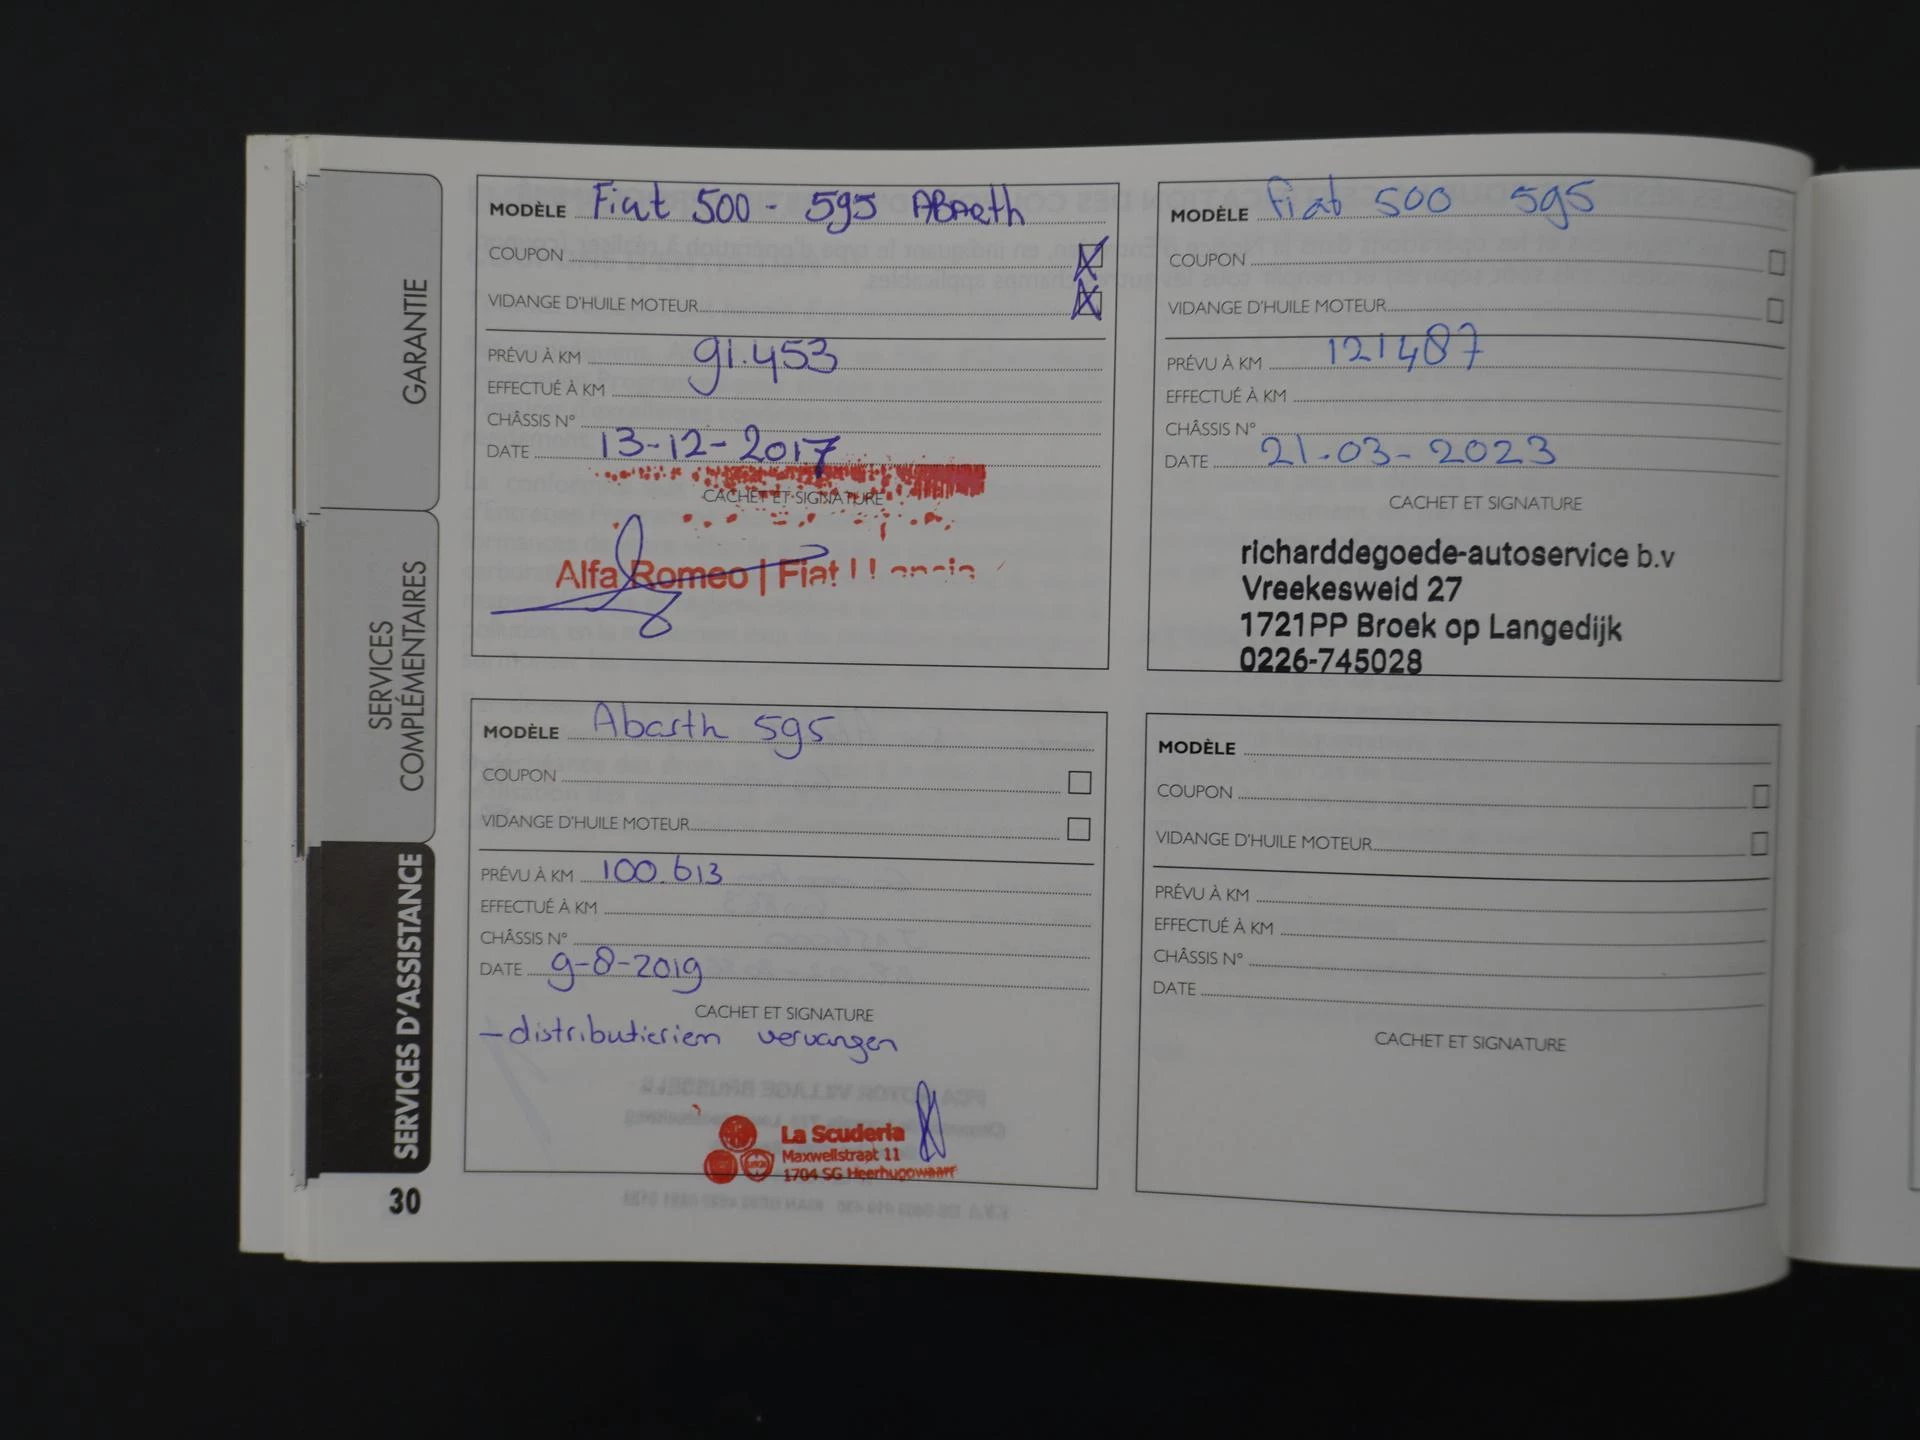 GARANTIE
SERVICES
COMPLÉMENTAIRES
SERVICES D'ASSISTANCE
30
MODÈLE Fiat 500 - 595 ABarth
COUPON
VIDANGE D'HUILE MOTEUR
PRÉVU À KM 91.453
EFFECTUÉ À KM
CHÂSSIS N°
DATE 13-12-2017
CACHET ET SIGNATURE
Alfa Romeo | Fiat | Lancia
MODÈLE Abarth 595
COUPON
VIDANGE D'HUILE MOTEUR
PRÉVU À KM 100.613
EFFECTUÉ À KM
CHÂSSIS N°
DATE 9-8-2019
CACHET ET SIGNATURE
- distributieriem vervangen
La Scuderia
Maxwellstraat 11
1704 SG Heerhugowaard
MODÈLE Fiat 500 595
COUPON
VIDANGE D'HUILE MOTEUR
PRÉVU À KM 121487
EFFECTUÉ À KM
CHÂSSIS N°
DATE 21-03-2023
CACHET ET SIGNATURE
richarddegoede-autoservice b.v
Vreekesweid 27
1721PP Broek op Langedijk
0226-745028
MODÈLE
COUPON
VIDANGE D'HUILE MOTEUR
PRÉVU À KM
EFFECTUÉ À KM
CHÂSSIS N°
DATE
CACHET ET SIGNATURE